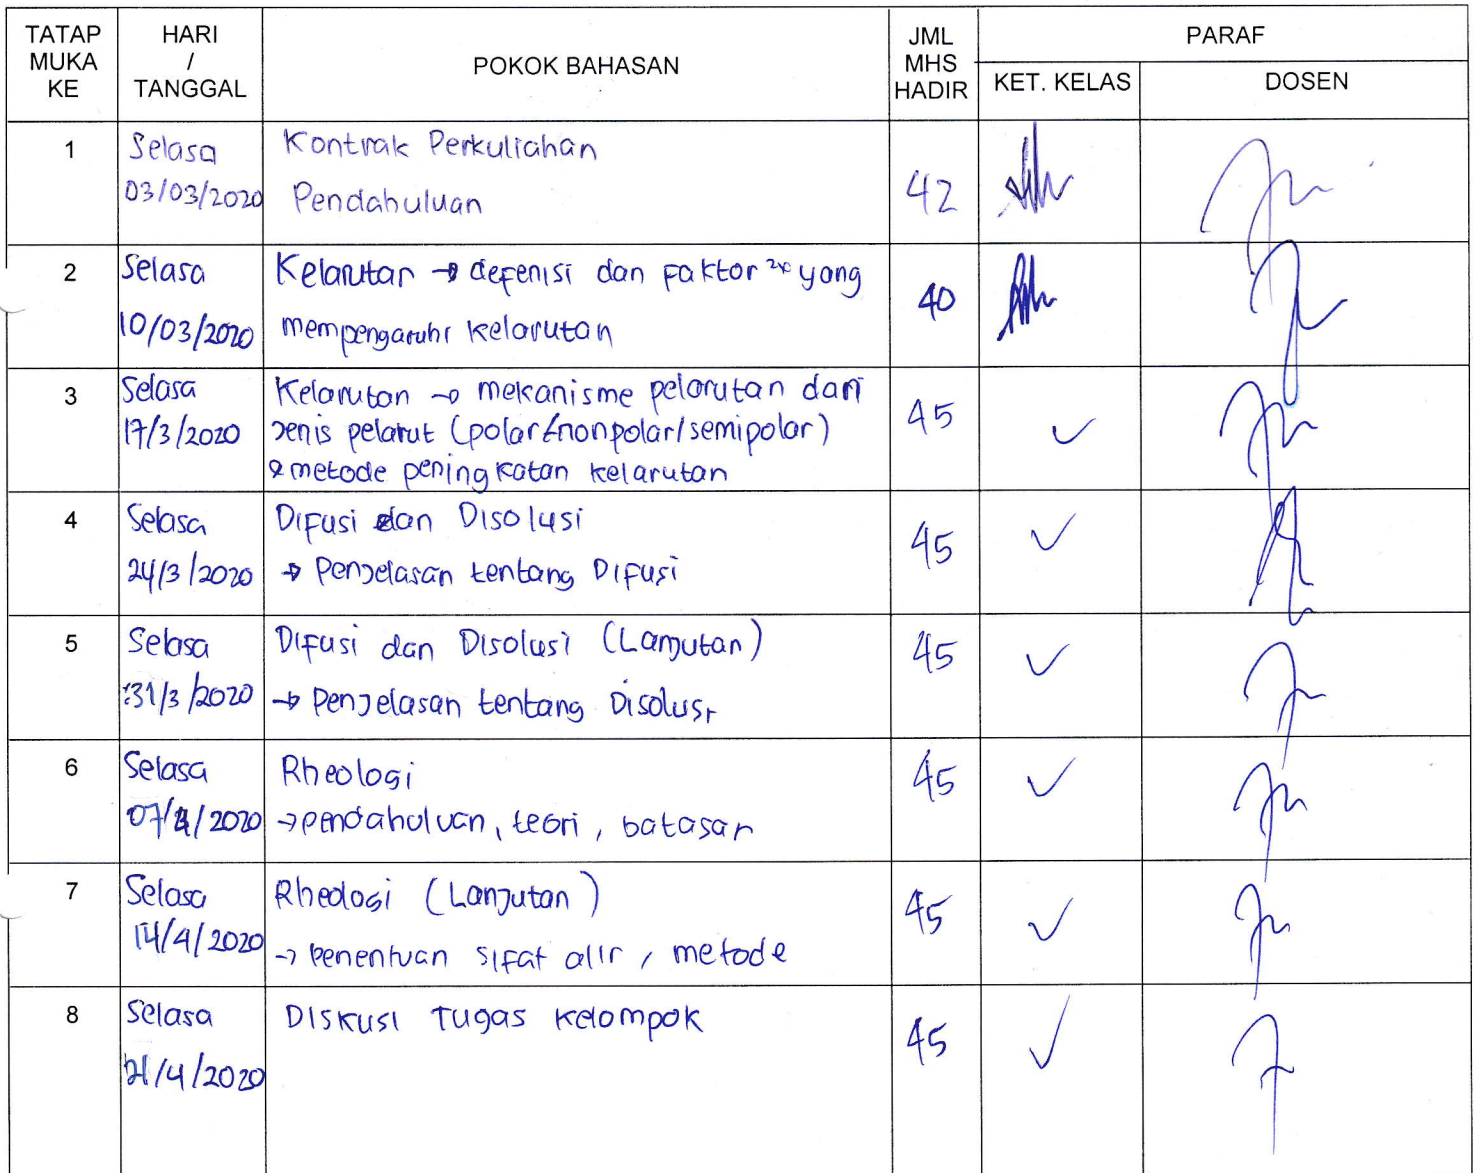 TATAP MUKA KE
HARI / TANGGAL
POKOK BAHASAN
JML MHS HADIR
PARAF
KET. KELAS
DOSEN
1
Selasa
03/03/2020
Kontrak Perkuliahan
Pendahuluan
42
2
Selasa
10/03/2020
Kelarutan → defenisi dan faktor²ˣ yang
mempengaruhi kelarutan
40
3
Selasa
17/3/2020
Kelarutan → mekanisme pelarutan dan
Jenis pelarut (polar/nonpolar/semipolar)
& metode peningkatan kelarutan
45
✓
4
Selasa
24/3/2020
Difusi dan Disolusi
→ Penjelasan tentang Difusi
45
✓
5
Selasa
31/3/2020
Difusi dan Disolusi (Lanjutan)
→ Penjelasan tentang Disolusi
45
✓
6
Selasa
07/4/2020
Rheologi
→ pendahuluan, teori, batasan
45
✓
7
Selasa
14/4/2020
Rheologi (Lanjutan)
→ Penentuan sifat alir, metode
45
✓
8
Selasa
21/4/2020
Diskusi Tugas Kelompok
45
✓